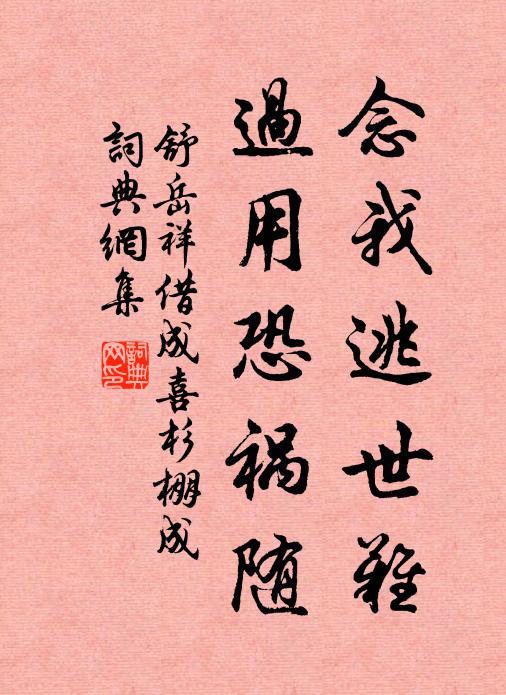 念我逃世難
過用恐禍随
舒岳祥借成喜杉棚成
詞典網集
詞典網印